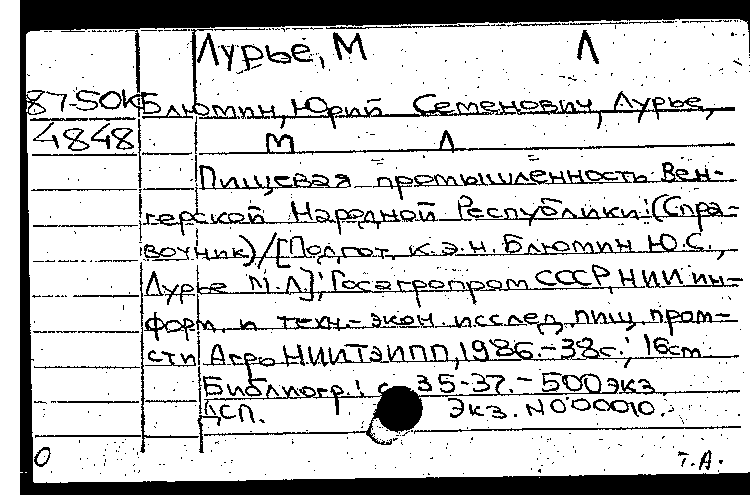 Лурье, М Л
87-50К Блюмин, Юрий Семенович, Лурье,
4848 М Л
Пищевая промышленность Вен-
герской Народной Республики: (Спра-
вочник) / [Подгот. к.э.н. Блюмин Ю.С.,
Лурье М.Л]; Госагропром СССР, НИИ ин-
форм. и техн.-экон. исслед. пищ. пром-
сти АгроНИИТЭИПП, 1986. - 38с.; 16см
Библиогр.: с. 35-37. - 500экз
ДСП. Экз. N000010.
О Т.А.